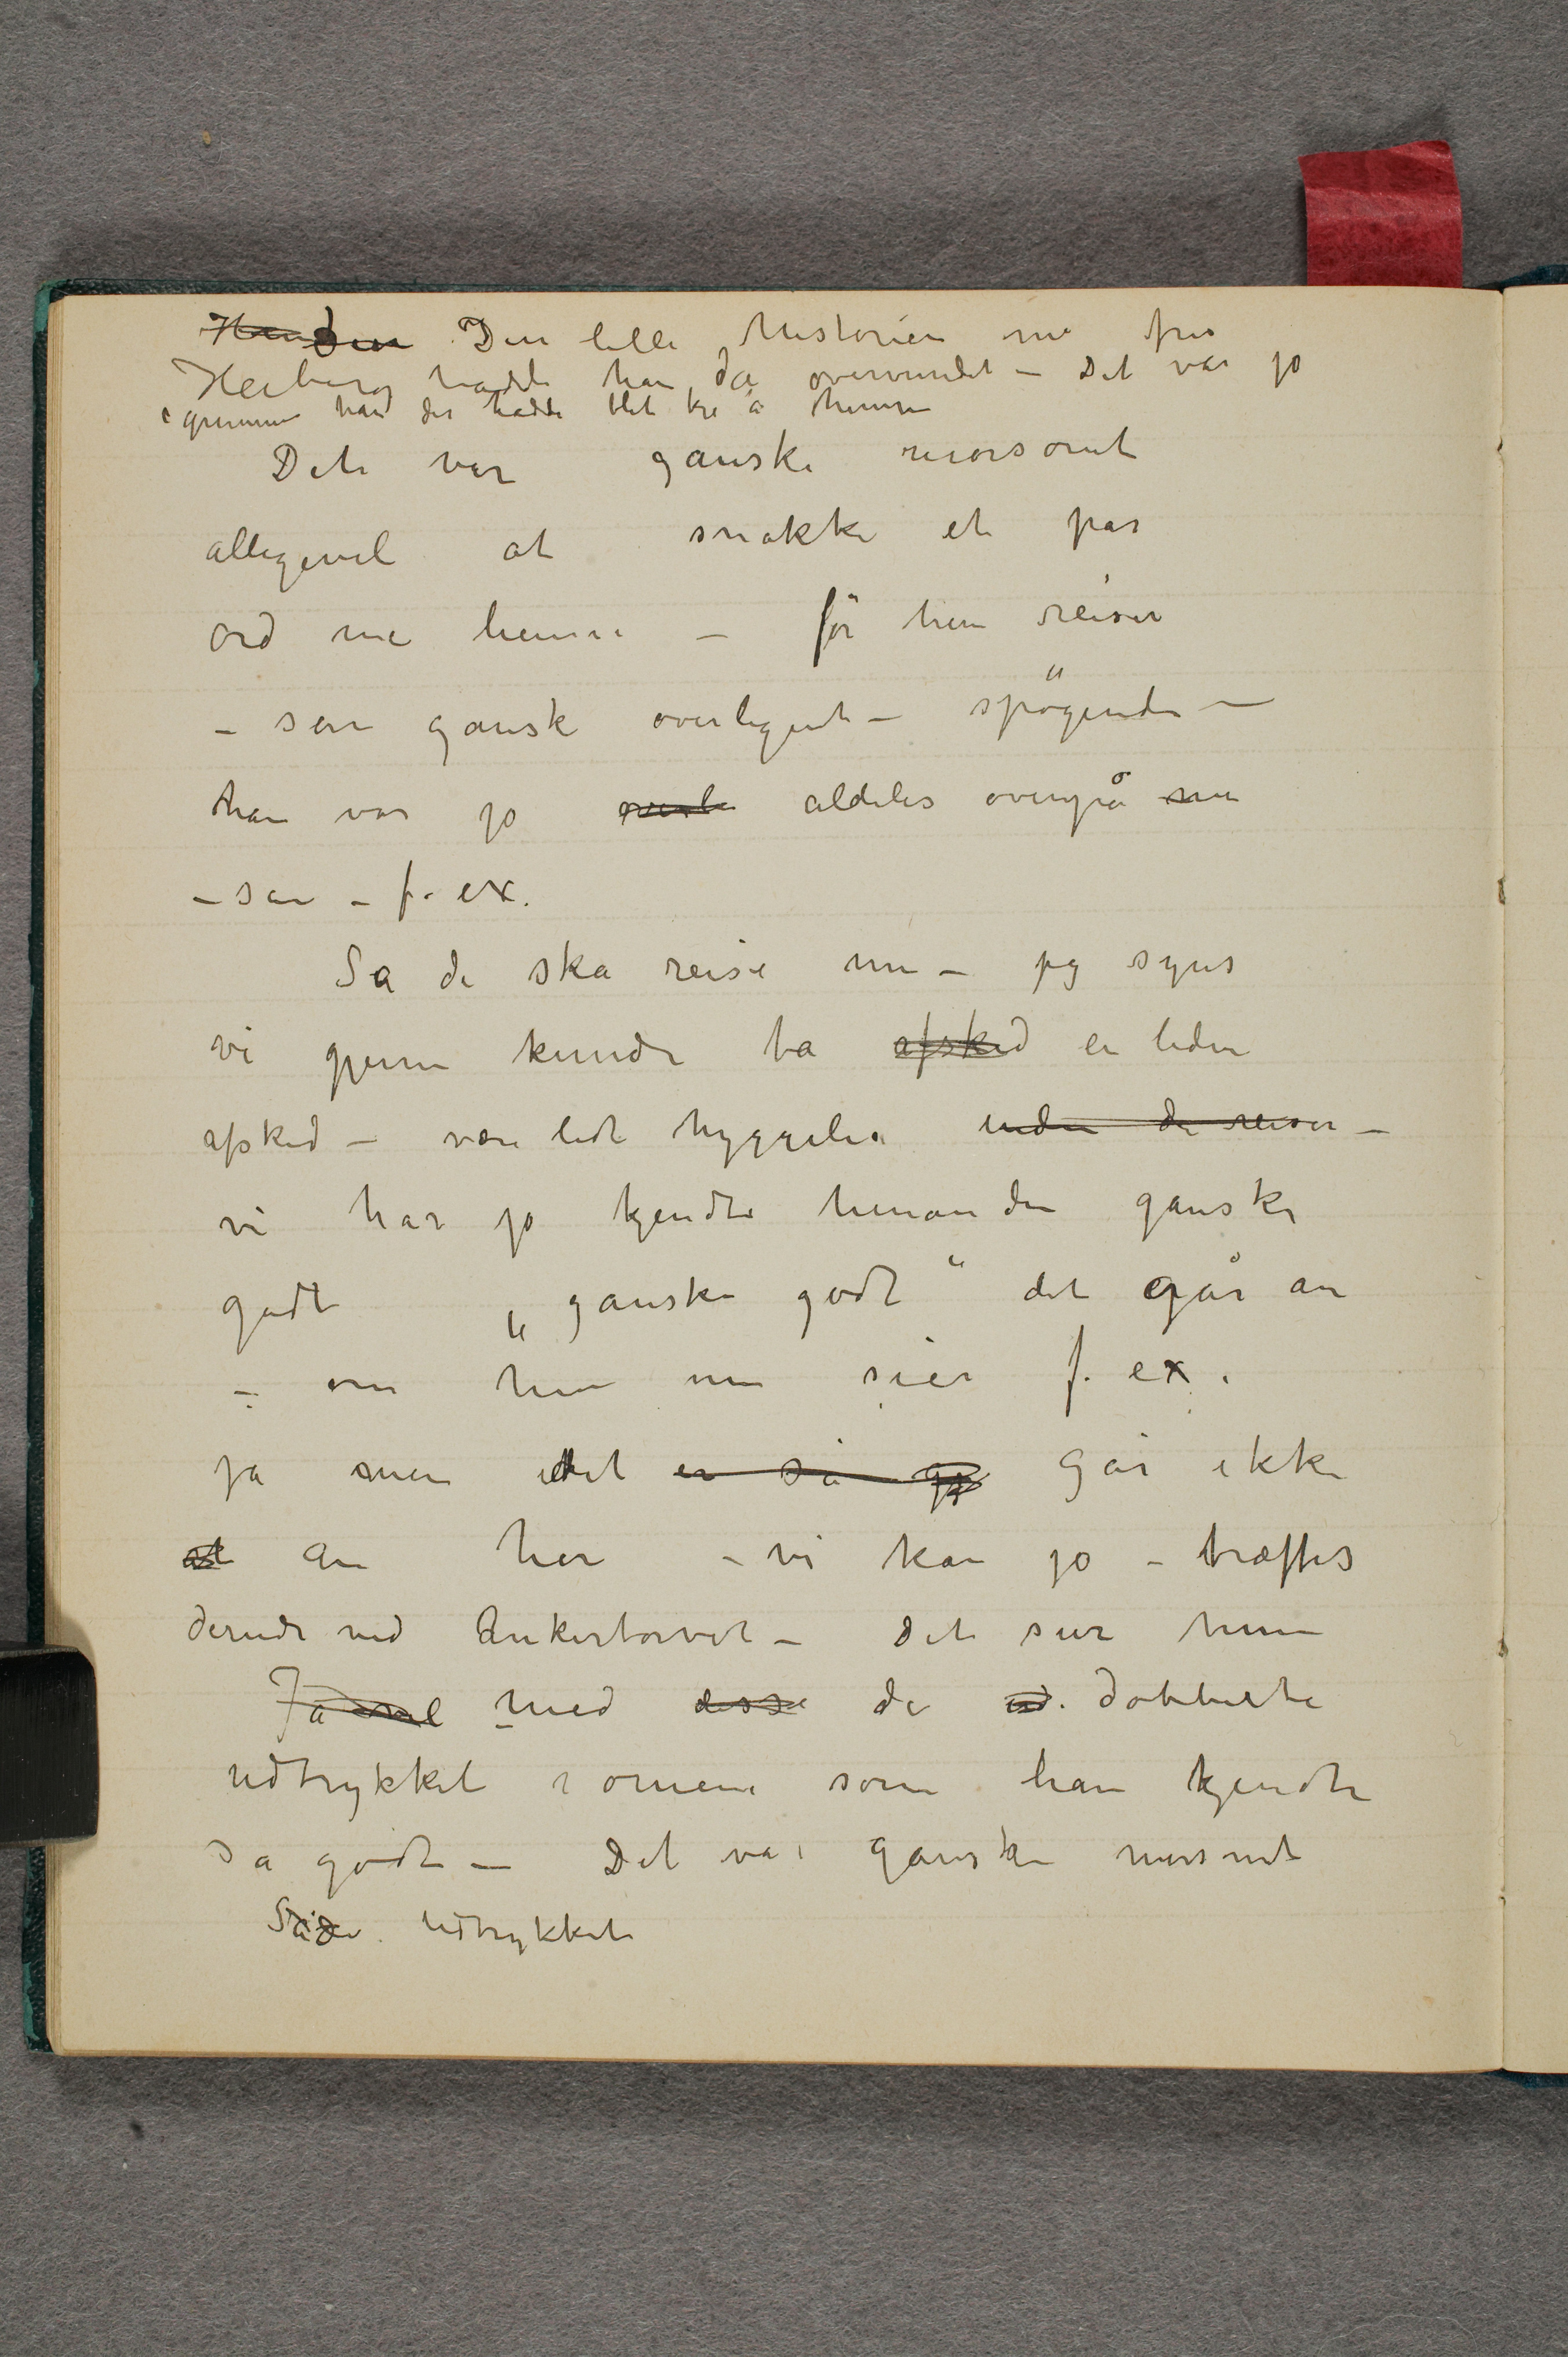 Den lille historien me fru
Heiberg hadde han da overvundet – Det var jo
igrunnen han der hadde blet kje a henne
Dete var ganske morsomt
alligevel at snakke et par
ord me henne – før hun reiser
– sån gansk overligent – spøgende –
han var jo aldeles ovenpå nu
– sån – f. ex.
Så de ska reise nu – jeg synes
vi gjerne kunde ta afsked en liden
afsked – være lidt hyggelia inden de reiser –
vi har jo kjendt hinanden ganske
godt „ganske godt“ det går an
– om hun nu sier f. ex.
ja men det er så går ikke
at an her – vi kan jo – træffes
dernede ved Ankertorvet – Det sier hun
Ja vel med disse de dobbelte
udtrykket i ømene som han kjendte
så godt – Det var ganske morsomt
udtrykket